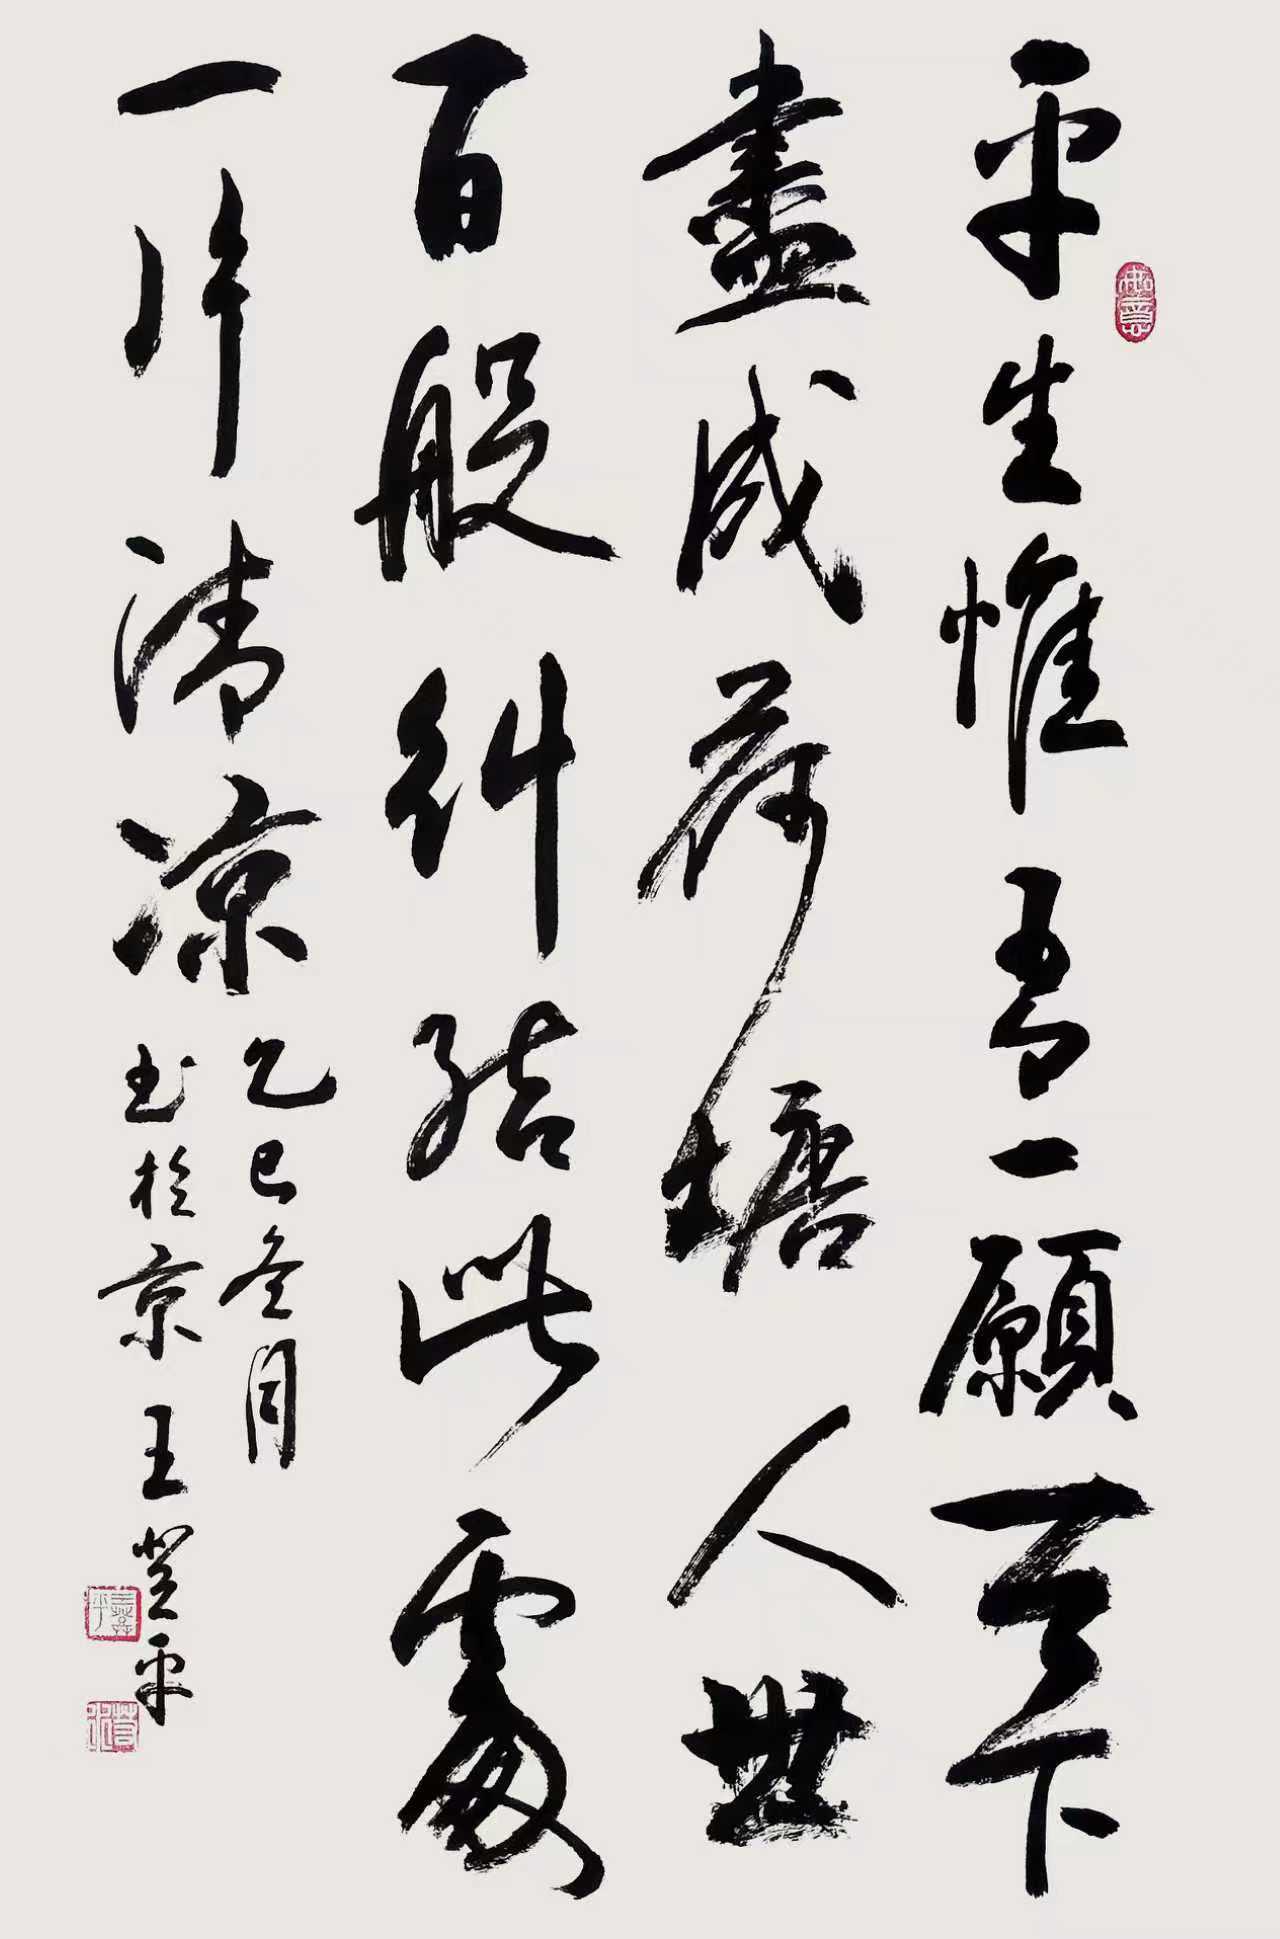 平生惟吾一願天下
盡成荷塘人世
百般糾結此處
一片清凉
乙巳冬月
書於京 王登平